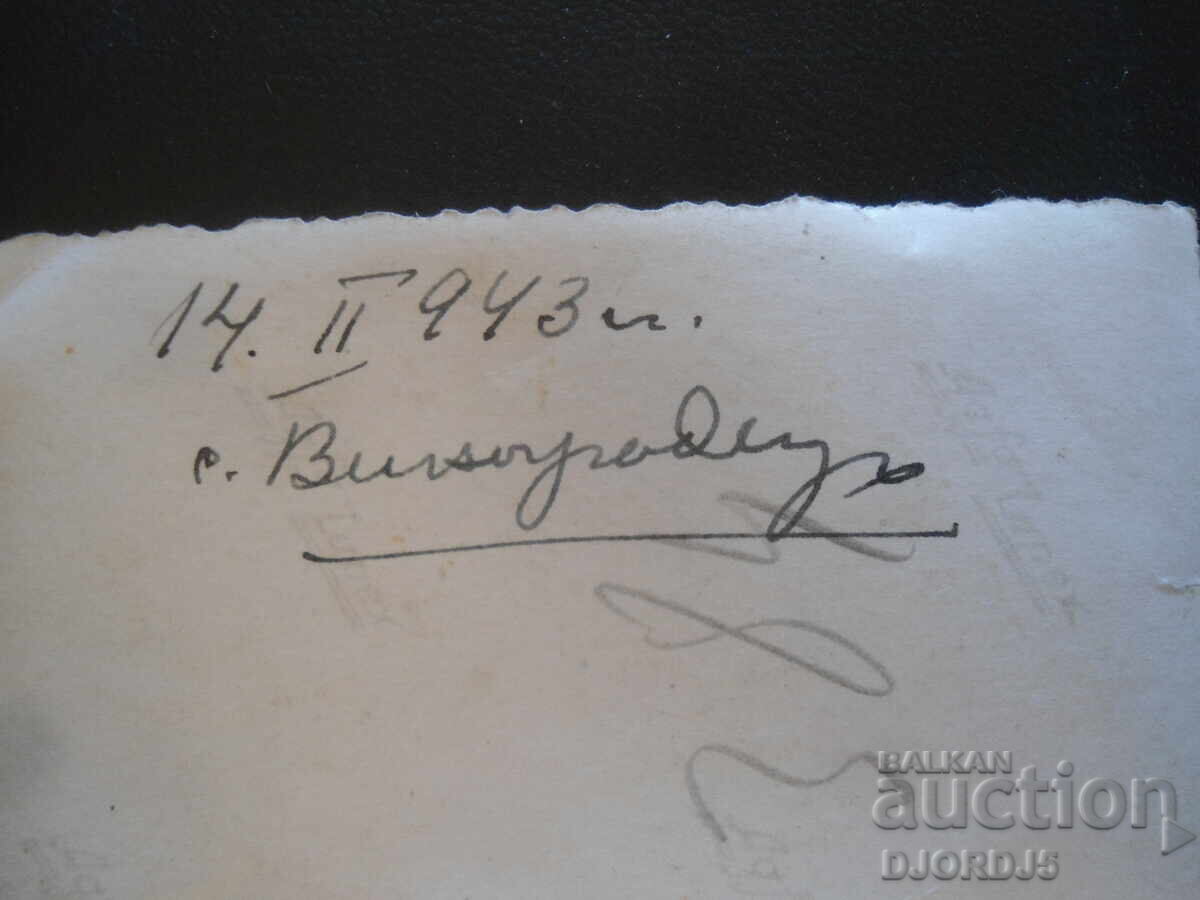 14. II 943 г.
с. Виноградецъ
BALKAN
auction
DJORDJ5